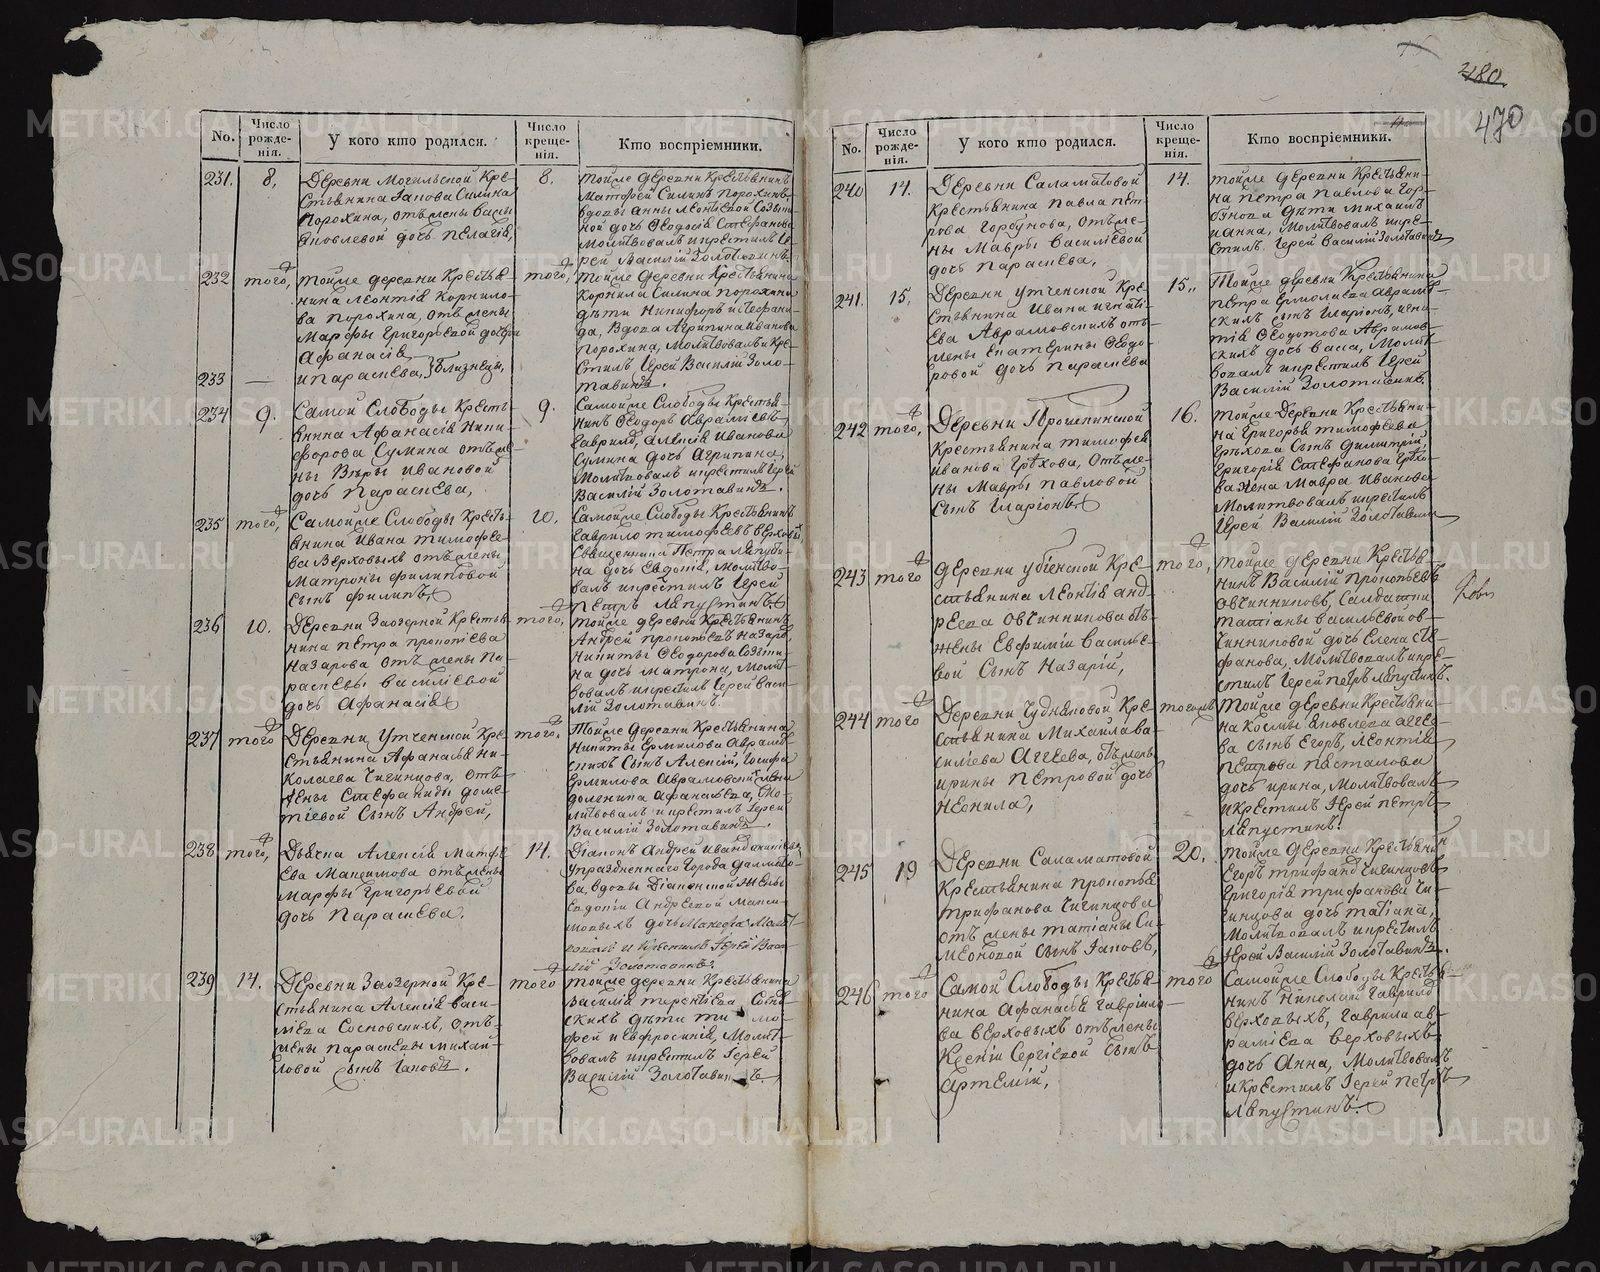 480
470
No.
Число рожде-нія.
У кого кто родился.
Число креще-нія.
Кто воспріемники.
231.
8,
Деревни Могильской Кре-
стьянина Іакова Силина
Порохина, отъ жены Васы
Яковлевой дочь Пелагія,
8.
тойже деревни Крестьянинъ
Матфей Силинъ Порохинъ,
вдовы Анны Леонтьевой
ной дочь Ѳеодосія Стефанова
Молитвовалъ и крестилъ Іе-
рей Василій Золотавинъ.
232
того,
тойже деревни Крестья-
нина Леонтія Корнило-
ва Порохина, отъ жены
Марфы Григорьевой дочери
Афанасія
233
—
и Параскева, Близнецы,
того,
Тойже деревни Крестьянина
Корнила Силина Порохина
дѣти Никифоръ и Стефани-
да, Вдова Агрипина Иванова
Порохина, Молитвовалъ и Кре-
стилъ Іерей Василій Золо-
тавинъ.
234
9.
Самой Слободы Кресть-
янина Афанасія Ники-
форова Сумина отъ же-
ны Вѣры Ивановой
дочь Параскева,
9.
Самойже Слободы Крестья-
нинъ Ѳеодоръ Авраміевъ
Гаврилъ, Алексія Иванова
Сумина дочь Агрипина,
Молитвовалъ и крестилъ Іерей
Василій Золотавинъ.
235
того,
Самойже Слободы Кресть-
янина Ивана Тимофее-
ва Верховыхъ отъ жены
Матроны Филиповой
Сынъ Филипъ
10.
Самойже Слободы Крестьянинъ
Гаврило Тимофеевъ Верховыхъ
Священника Петра Лапусти-
на дочь Евдокія, Молитво-
валъ и крестилъ Іерей
Петръ Лапустинъ
236
10.
Деревни Заозерной Крестья-
нина Петра Прокопіева
Назарова отъ жены Па-
раскевы Василіевой
дочь Афанасія
того,
Тойже деревни Крестьянинъ
Андрей Прокопьевъ Назаров,
Никиты Ѳеодорова
на дочь Матрона, Молит-
вовалъ и крестилъ Іерей Васи-
лій Золотавинъ.
237
того
Деревни Утченской Кре-
стьянина Афанасья Ни-
колаева Чигинцова, отъ
жены Стефаниды Доме-
тіевой Сынъ Андрей,
того,
Тойже деревни Крестьянина
Никиты Ермилова Аврамов-
скихъ Сынъ Алексій, Іосифа
Ермилова Аврамовскихъ жена
Домникия Афанасьева, Мо-
литвовалъ и крестилъ Іерей
Василій Золотавинъ.
238
того,
Дьячка Алексія Матфе-
ева Максимова отъ жены
Марфы Григорьевой
дочь Параскева.
14.
Діаконъ Андрей Иванов
Упраздненнаго Города Далмато-
ва, вдовы Діаконской жены
Евдокіи Андреевой Макси-
мовыхъ дочь Молит-
вовалъ и Крестилъ Іерей Васи-
лій Золотавинъ.
239
14.
Деревни Заозерной Кре-
стьянина Алексія Васи-
ліева Сосновскихъ, отъ
жены Параскевы Михай-
ловой Сынъ Іаковъ.
того
тойже деревни Крестьянина
Василія Терентьева Сосно-
скихъ дѣти Тимо-
фей и Евфросинія, Молит-
вовалъ и крестилъ Іерей
Василій Золотавинъ
No.
Число рожде-нія.
У кого кто родился.
Число креще-нія.
Кто воспріемники.
240
14.
Деревни Саламатовой
Крестьянина Павла Пет-
рова Горбунова, отъ же-
ны Мавры Василіевой
дочь Параскева,
14.
тойже деревни Крестьяни-
на Петра Павлова Гор-
бунова дѣти Михаилъ
и Анна, Молитвовалъ и кре-
стилъ Іерей Василій Золотавинъ
241.
15,
Деревни Утченской Кре-
стьянина Ивана Игнатi-
ева Аврамовскихъ отъ
жены Екатерины Ѳеодо-
ровой дочь Параскева
15,
Тойже деревни Крестьянина
Петра Ермолаева Аврамов-
скихъ сынъ Иларіонъ, Игна-
тія Ѳеодотова Аврамов-
скихъ дочь Васса, Молит-
вовалъ и крестилъ Іерей
Василій Золотавинъ.
242
того,
Деревни Крошекинской
Крестьянина Тимофея
Иванова Грѣхова, отъ же-
ны Мавры Павловой
Сынъ Иларіонъ
16.
тойже деревни Крестьяни-
на Григорья Тимофеева
Грѣхова Сынъ Димитрій,
Григорія Стефанова Грѣхо-
ва жена Мавра Иванова
Молитвовалъ и крестилъ
Іерей Василій Золотавинъ
243
того
Деревни Убіенской Кре-
стьянина Леонтія Анд-
реева Овчинникова отъ
жены Евфиміи Василье-
вой Сынъ Назарій,
того,
тойже деревни Крестья-
нинъ Василій Прокопьевъ
Овчинниковъ, Салдатки
татіаны Васильевой Ов-
чинниковой дочь Елена Сте-
фанова, Молитвовалъ и кре-
стилъ Іерей Петръ Лапустинъ.
244
того
Деревни Чудиновой Кре-
стьянина Михаила Ва-
силіева Агѣева, отъ жены
Ирины Петровой дочь
Неонила,
тогожъ
Тойже деревни Крестьяни-
на Космы Яковлева Агѣе-
ва сынъ Егоръ, Леонтія
Петрова Пасталова
дочь Ирина, Молитвовалъ
и крестилъ Іерей Петръ
Лапустинъ.
245
19
Деревни Саламатовой
Крестьянина Прокопья
Трифанова Чигинцова
отъ жены Татіаны Си-
меоновой Сынъ Іаковъ,
20.
тойже деревни Крестьянинъ
Егоръ Трифановъ Чигинцовъ
Григорія Трифанова Чи-
гинцова дочь Татіана,
Молитвовалъ и крестилъ
Іерей Василій Золотавинъ.
246
того
Самой Слободы Крестья-
нина Афанасья Гаврило-
ва Верховыхъ отъ жены
Ксеніи Сергіевой Сынъ
Артемій,
того
Самойже Слободы Крестья-
нинъ Николай Гавриловъ
Верховыхъ, Гаврила Ав-
раміева Верховыхъ
дочь Анна, Молитвовалъ
и крестилъ Іерей Петръ
Лапустинъ.
METRIKI.GASO-URAL.RU